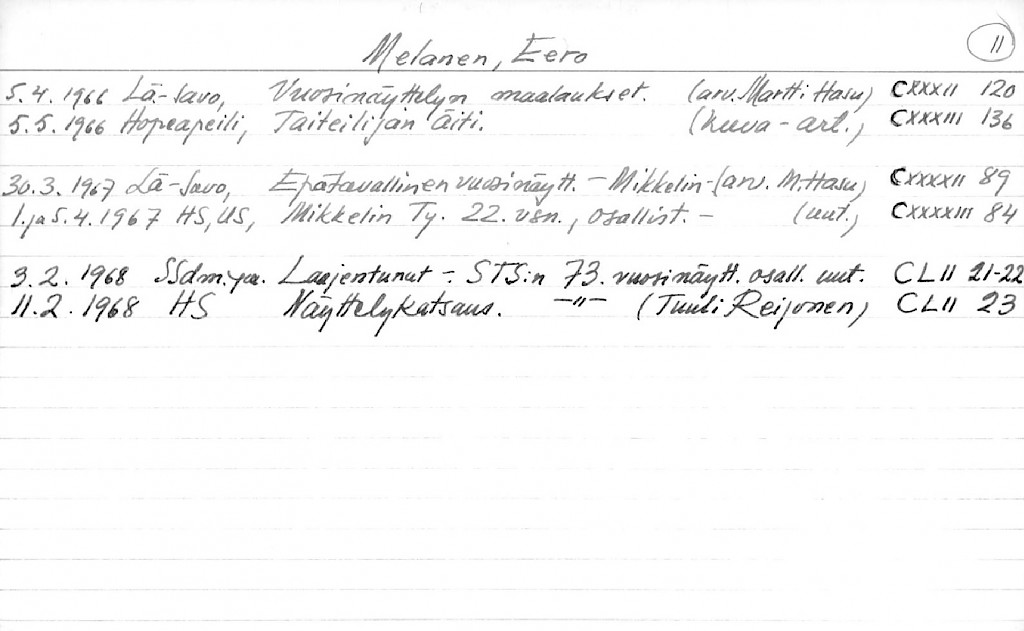 11
Melanen, Eero
5.4.1966 Lä-Savo, Vuosinäyttelyn maalaukset. (arv. Martti Hasu) CXXXII 120
5.5.1966 Hopeapeili, Taiteilijan äiti. (kuva-art.,) CXXXIII 136
30.3.1967 Lä-Savo, Epätavallinen vuosinäytt. - Mikkelin - (arv. M. Hasu) CXXXXII 89
1. ja 5.4.1967 HS, US, Mikkelin Ty. 22. vsn., osallist. - (uut.) CXXXXIII 84
3.2.1968 Laajentunut - STS:n 73. vuosinäytt. osall. uut. CLII 21-22
11.2.1968 HS Näyttelykatsaus. -"- (Tuuli Reijonen) CLII 23